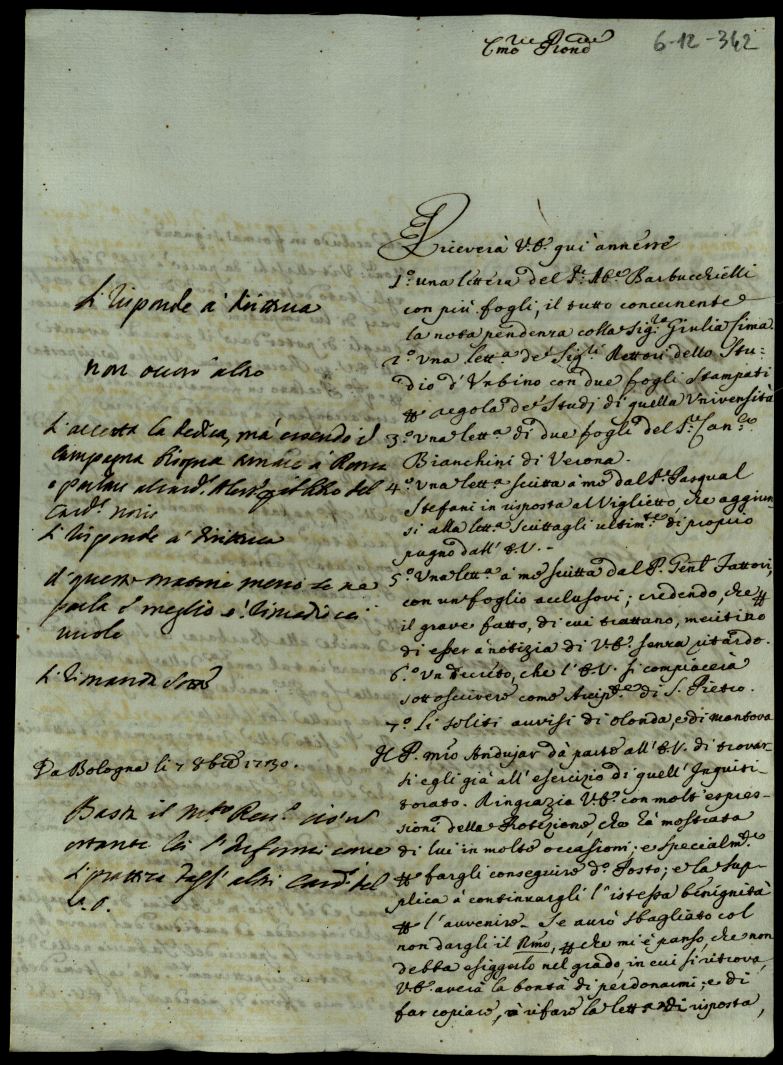 6-12-342
Emo Rñe Prone
Riceverà V.E. qui annesse
1.° una lettera del Sr. Ab.e Barbucchielli
con più fogli, il tutto concernente
la nota pendenza colla Sig.ra Giulia Cima.
2.° Una lett.a de' Sig.li Rettori dello Stu-
dio d'Urbino con due fogli stampati
regola de' Studj di quella Università
3.° Una lett.a di due fogli del Sr. Can.co
Bianchini di Verona.
4.° Una lett.a scritta a me dal Sr. Pasqual
Stefani in risposta al Viglietto, che aggiun-
si alla lett.a scrittagli ultim.te di proprio
pugno dall'E.V. -
5.° Una lett.a a me scritta dal P. Gent.l Fattori,
con un foglio acclusovi; credendo, che
il grave fatto, di cui trattano, meritino
di esser a notizia di V.E. senza ritardo.
6.° Un Decreto, che l'E.V. si compiacerà
sottoscivere come Arcip.te di S. Pietro.
7.° Li soliti avvisi di olonda, e di mantova
Il P. mro Andujar dà parte all'E.V. di trovar-
si egli già all'esercizio di quell'Inquisi-
torato. Ringrazia V.E. con molt'espres-
sioni della Protezione, che hà mostrata
di lui in molte occasioni; e specialm.te
fargli conseguire d.° Posto; e la sup-
plica à continuargli l'istessa benignità
l'avvenire. Se avrò sbagliato col
non dargli il Rmo, che mi è parso, che non
debba esiggerlo nel grado, in cui si ritrova,
V.E. averà la bontà di perdonarmi; e di
far copiare, ò rifare la lett.a di risposta,
Si risponde à dirittura
non occor altro
Si accetta la dedica, mà essendo il
Campegna bisogna à Roma
e parlare al Card. del
Card. noris
Si risponde à dirittura
d'questa materia meno se ne
parla è meglio e
Si rimanda
Da Bologna li 7 8bre 1730.
Basta il Rev.o
Si pratica dagl'altri Card.i del
S.O.